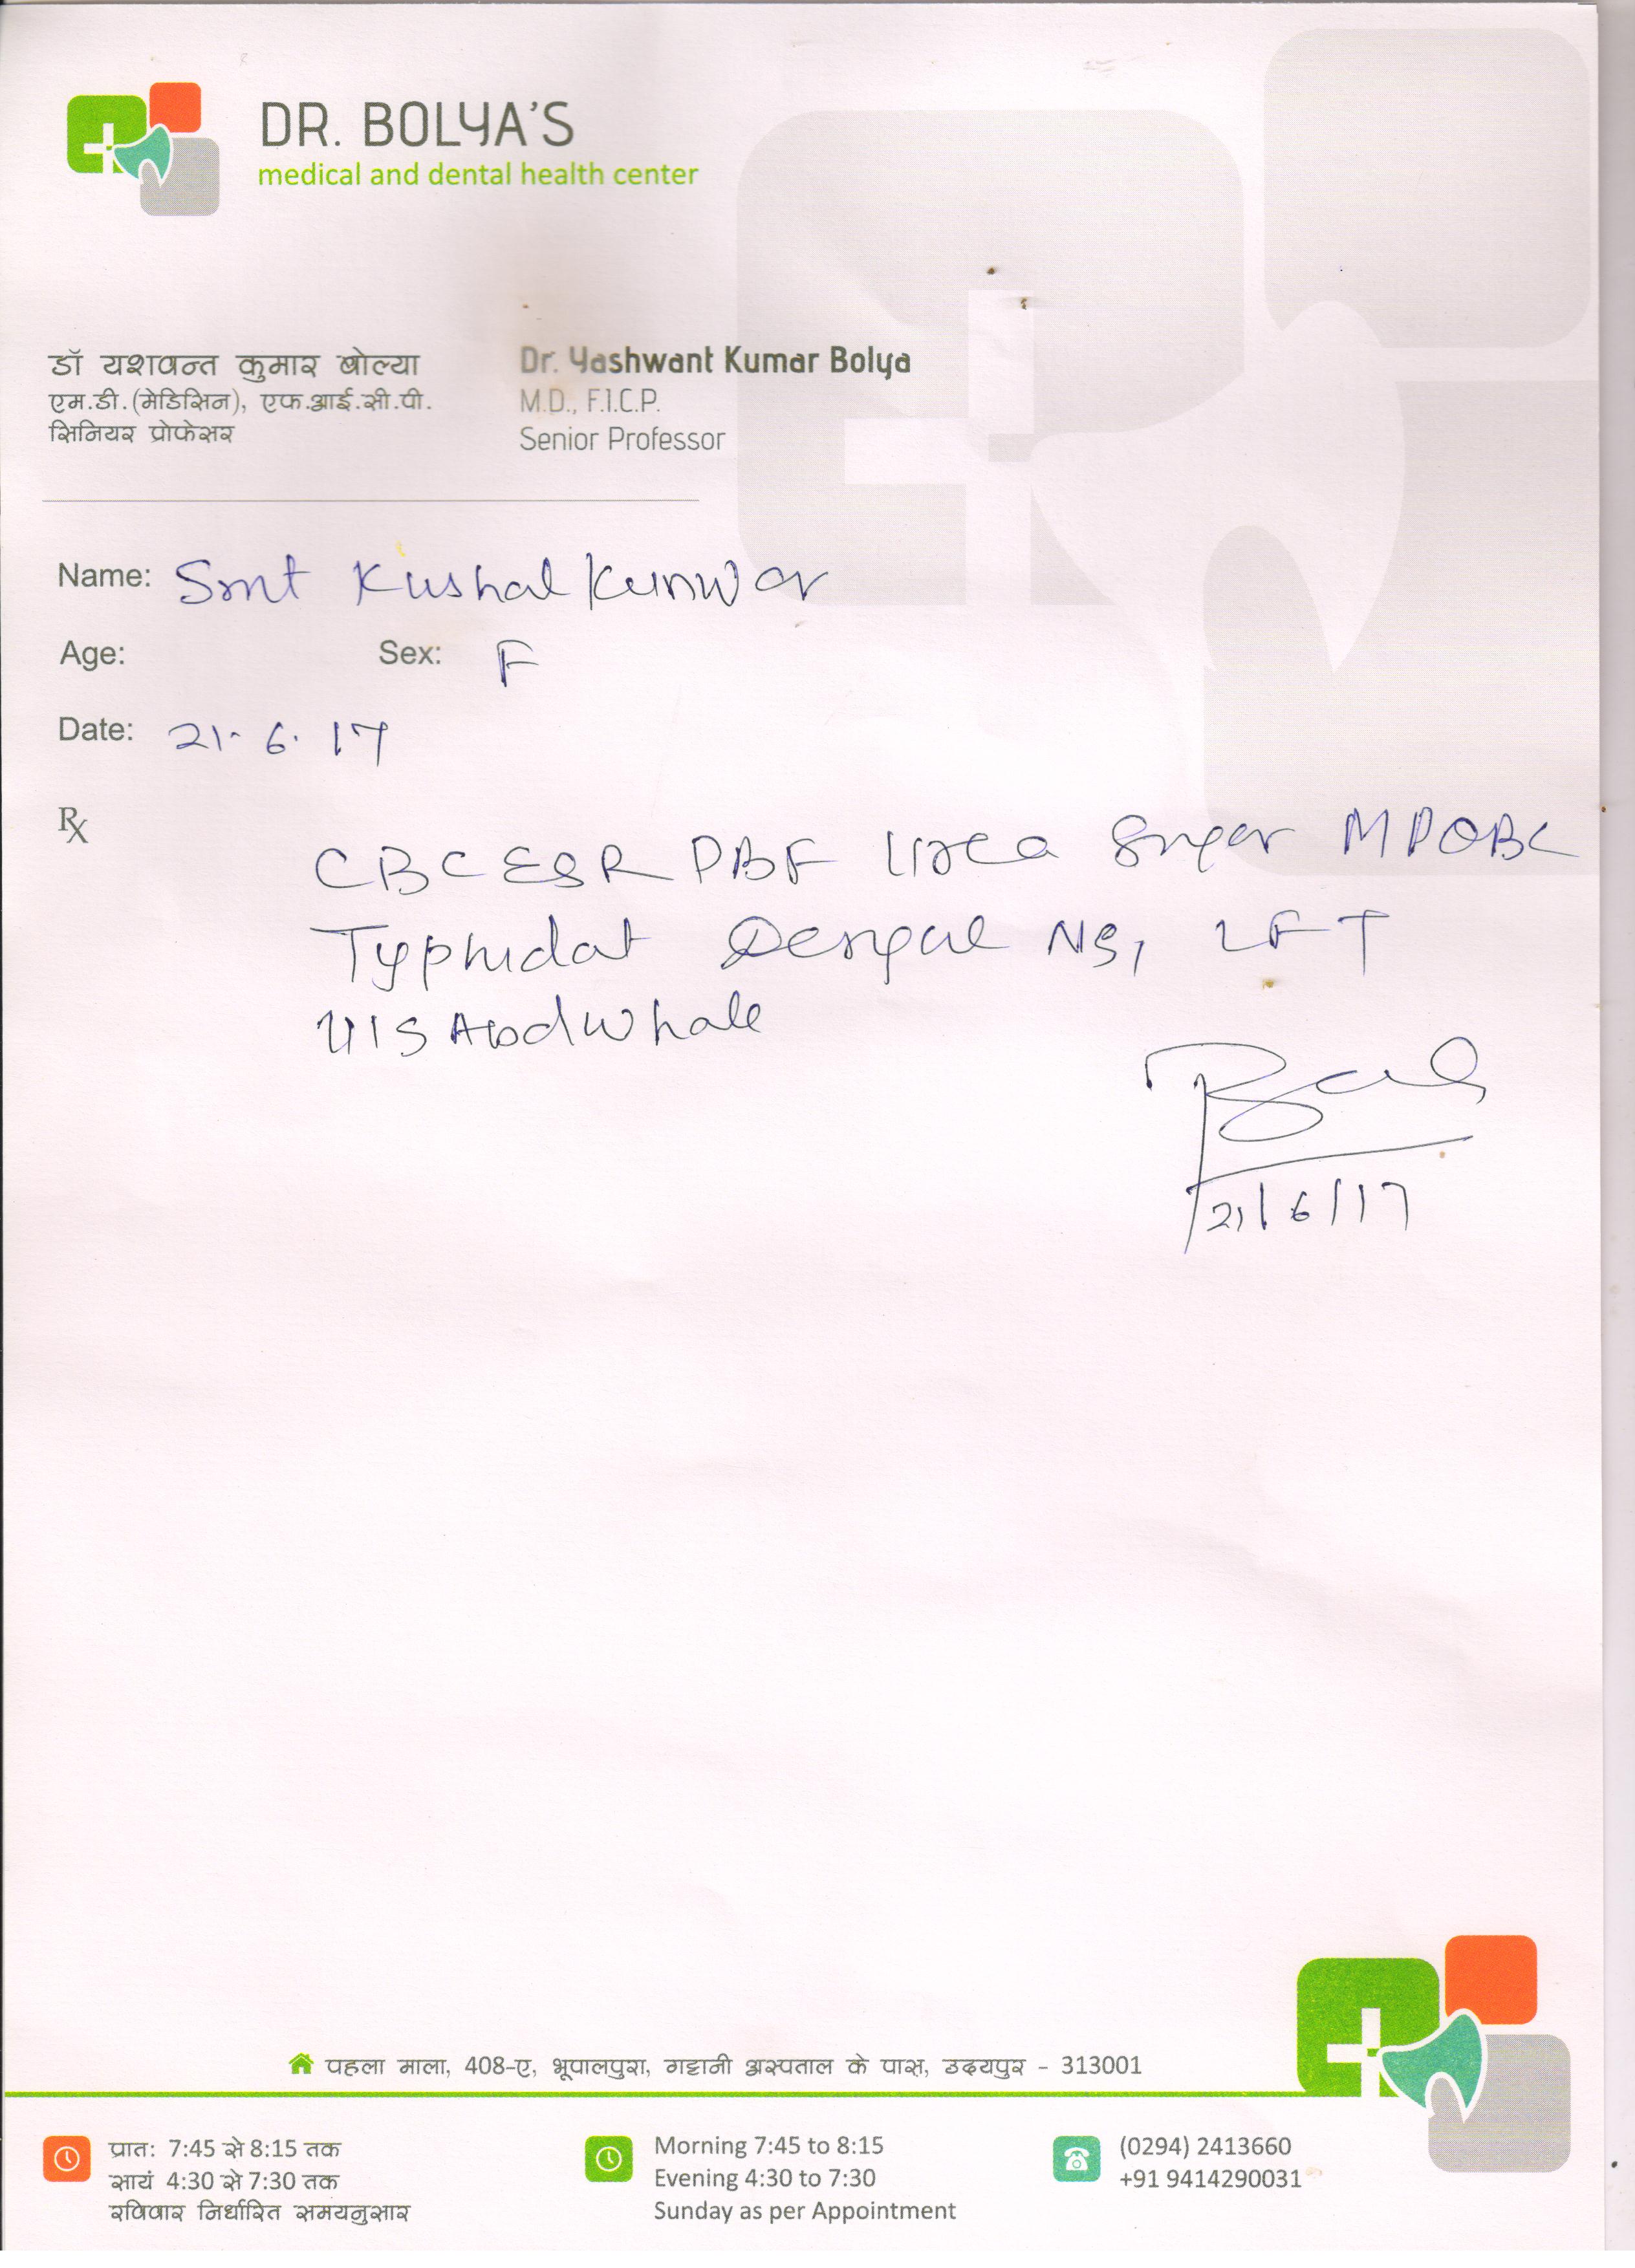 DR. BOLYA'S
medical and dental health center
डॉ यशवन्त कुमार बोल्या
एम.डी.(मेडिसिन), एफ.आई.सी.पी.
सिनियर प्रोफेसर
Dr. Yashwant Kumar Bolya
M.D., F.I.C.P.
Senior Professor
Name: Smt Kushal Kunwar
Age: Sex: F
Date: 21.6.17
Rx
CBC ESR PBF Urea Sugar MPQBC
Typhidot Dengue NS1 LFT
U/S Abd Whole
21/6/17
पहला माला, 408-ए, भूपालपुरा, गट्टानी अस्पताल के पास, उदयपुर - 313001
प्रात: 7:45 से 8:15 तक
सायं 4:30 से 7:30 तक
रविवार निर्धारित समयनुसार
Morning 7:45 to 8:15
Evening 4:30 to 7:30
Sunday as per Appointment
(0294) 2413660
+91 9414290031